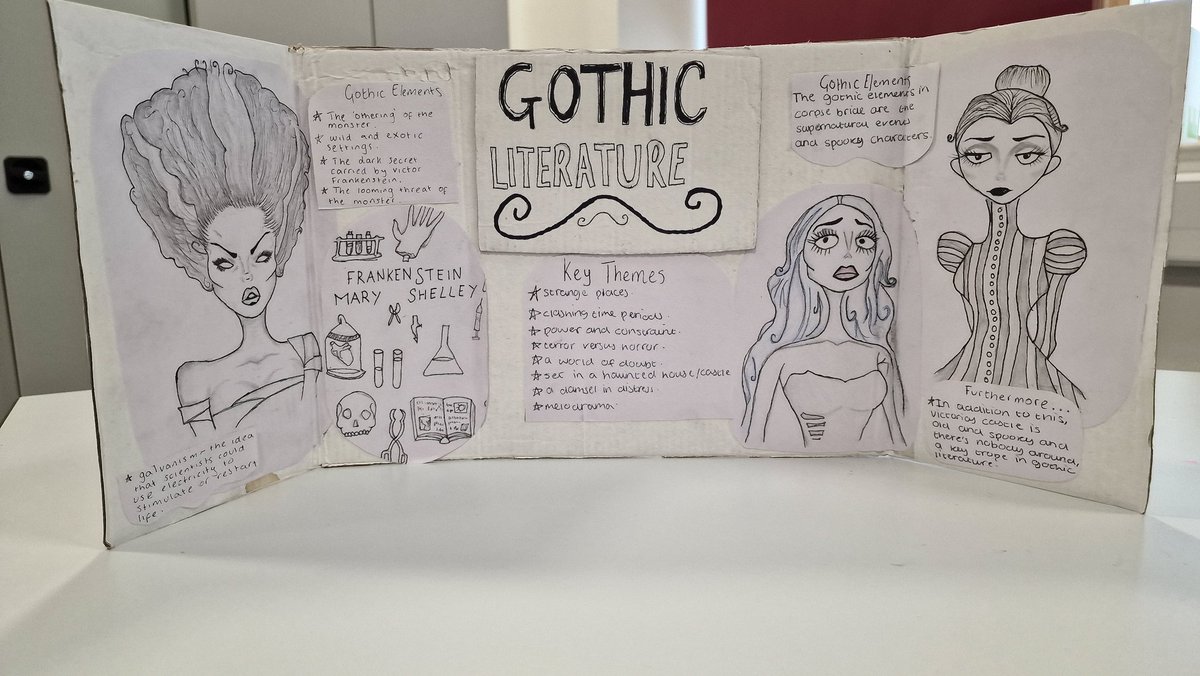 GOTHIC
LITERATURE
Gothic Elements
★ The 'othering' of the
monster.
★ wild and exotic
settings.
★ The dark secret
carried by victor
Frankenstein.
★ The looming threat of
the monster.
FRANKENSTEIN
MARY SHELLEY
★ galvanism - the idea
that scientists could
use electricity to
stimulate or restart
life.
Key Themes
★ strange places.
★ clashing time periods.
★ power and constraint.
★ terror versus horror.
★ a world of doubt.
★ set in a haunted house/castle
★ a damsel in distress.
★ melodrama.
Gothic Elements
The gothic elements in
corpse bride are the
supernatural events
and spooky characters.
Furthermore...
★ In addition to this,
victorias castle is
old and spooky and
there's nobody around,
a key trope in gothic
literature.